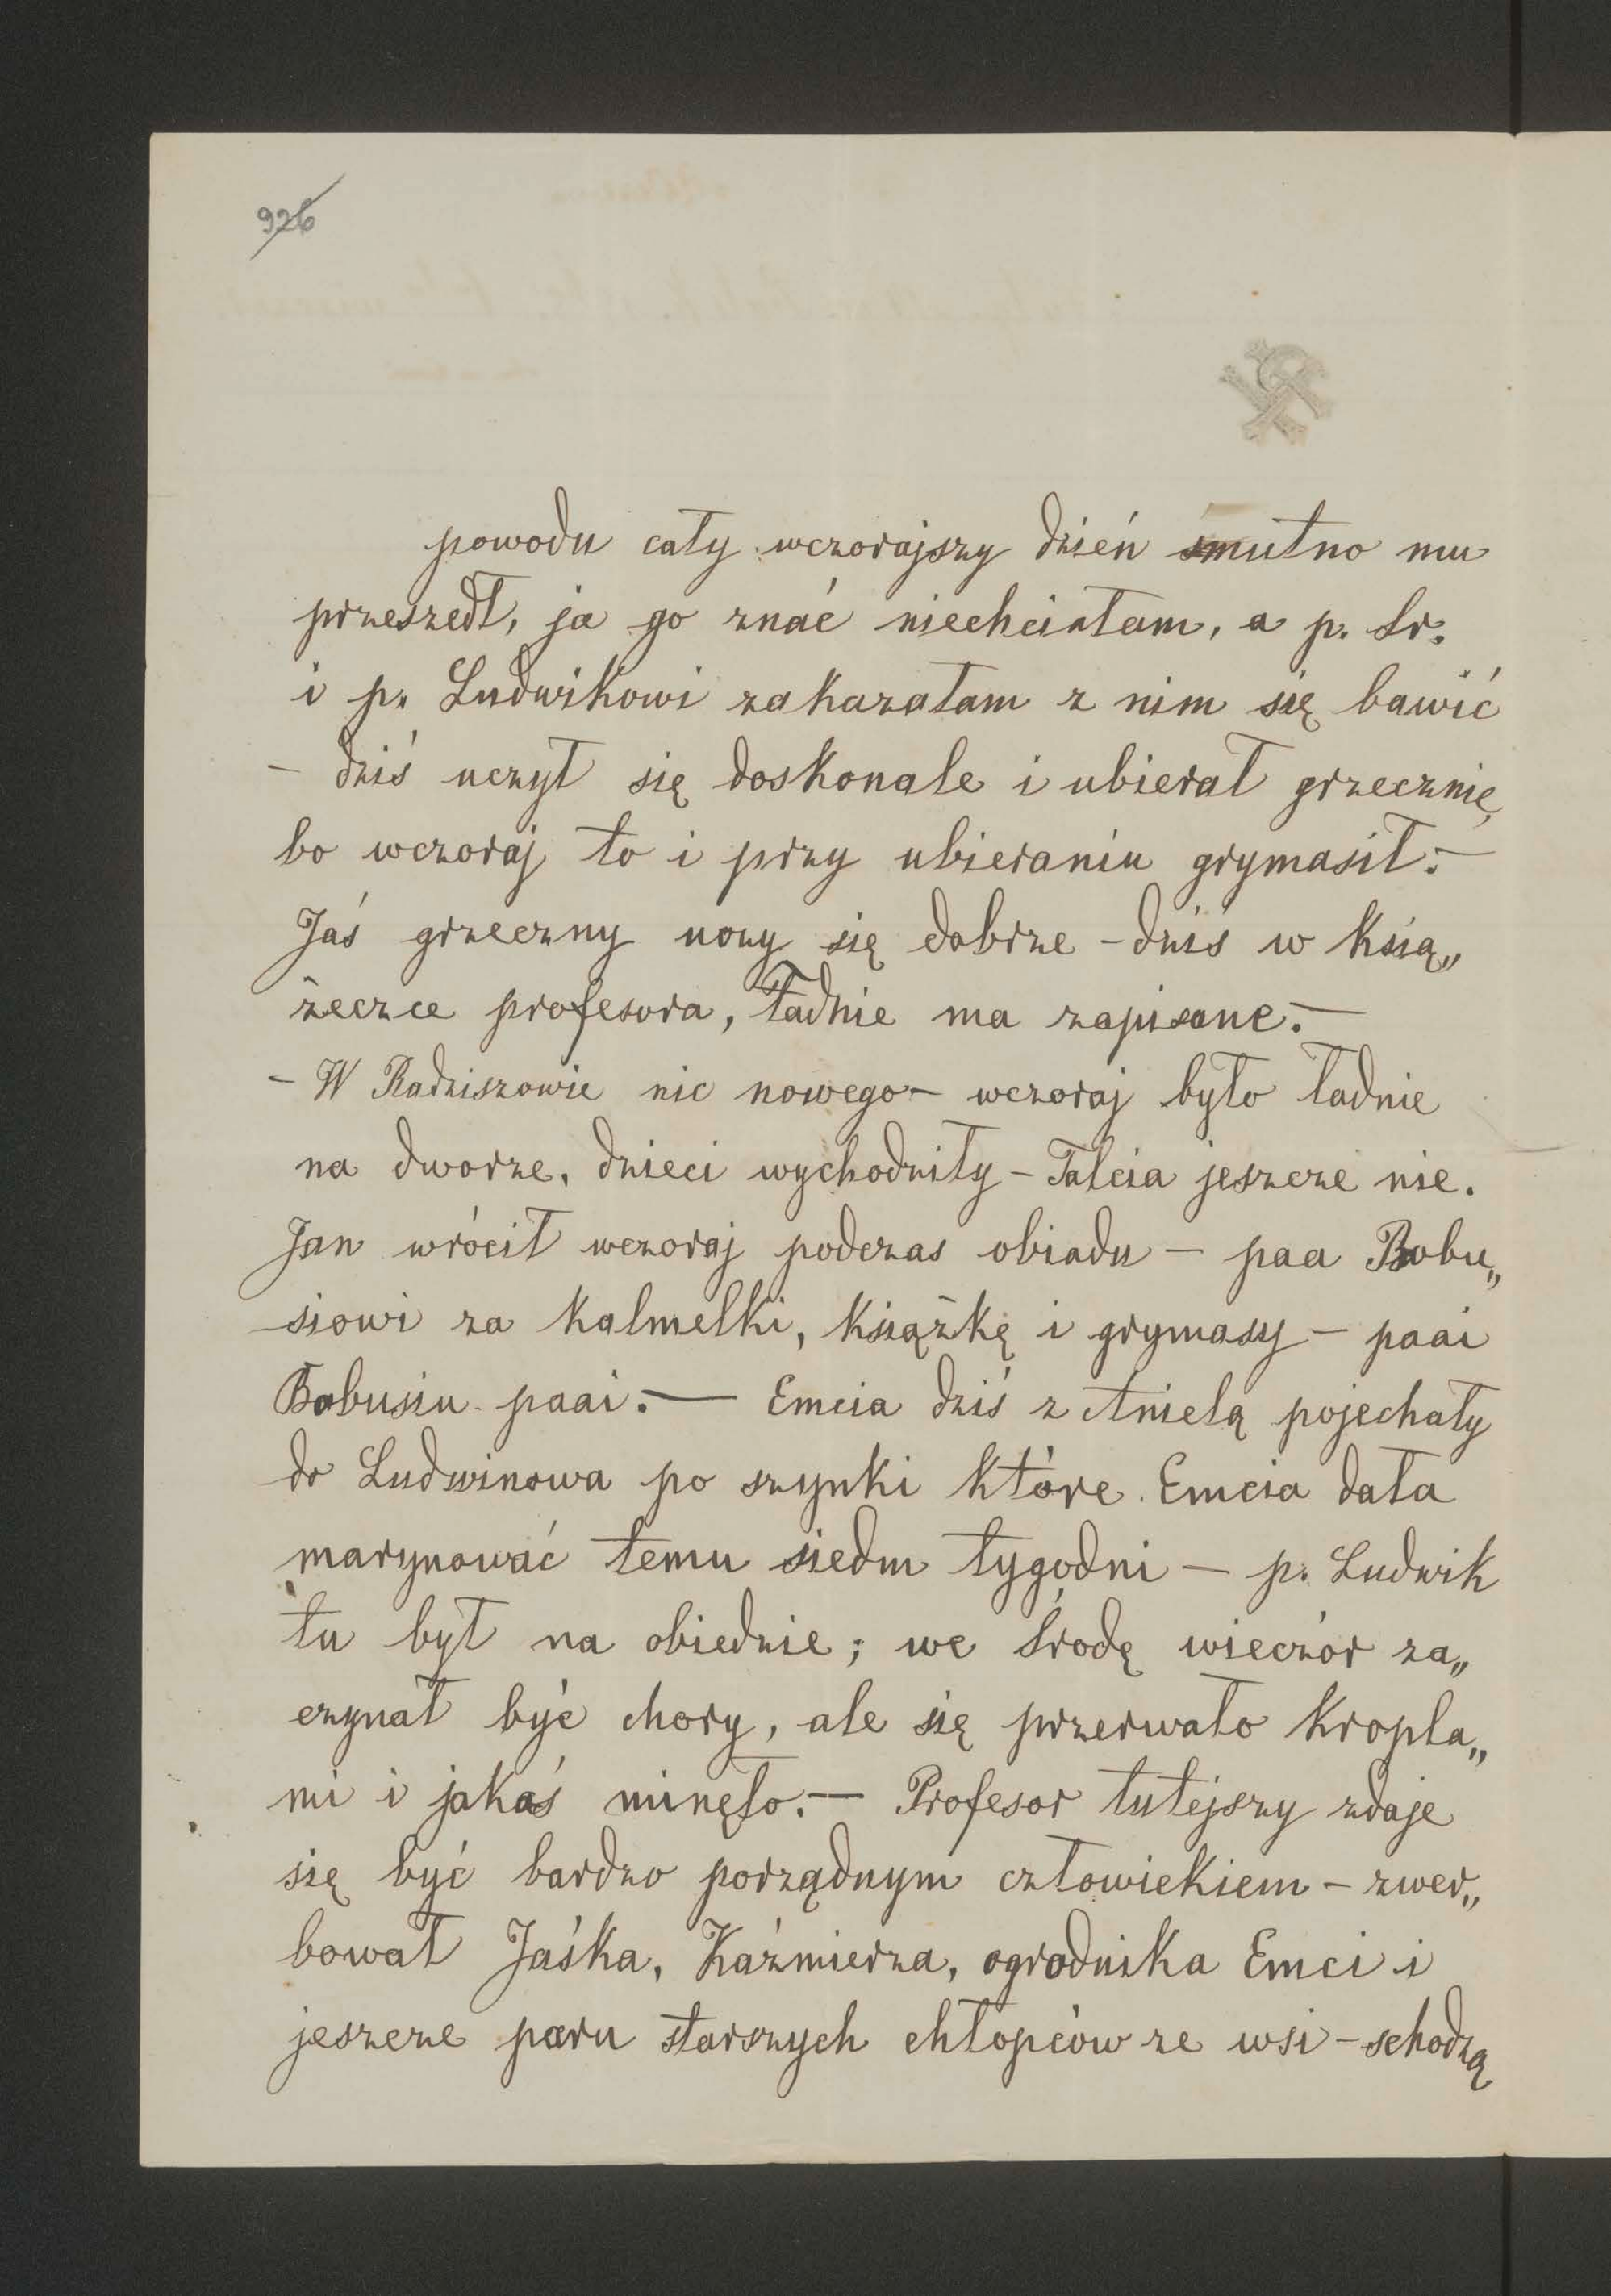 926
powodu cały wczorajszy dzień smutno mu
przeszedł, ja go znać niechciałam, a p. Śr.
i p. Ludwikowi zakazałam z nim się bawić
– dziś uczył się doskonale i ubierał grzecznie,
bo wczoraj to i przy ubieraniu grymasił.–
Jaś grzeczny uczy się dobrze – dziś w ksią„
żeczce profesora, ładnie ma zapisane.–
– W Radziszowie nic nowego – wczoraj było ładnie
na dworze, dzieci wychodziły – Talcia jeszcze nie.
Jan wrócił wczoraj podczas obiadu – paa Bobu„
siowi za kalmelki, książkę i grymasy – paai
Bobusiu paai.— Emcia dziś z Anielą pojechały
do Ludwinowa po szynki które Emcia dała
marynować temu siedm tygodni — p. Ludwik
tu był na obiedzie; we Środę wieczór za„
czynał być chory, ale się przerwało kropla„
mi i jakoś minęło.— Profesor tutejszy zdaje
się być bardzo porządnym człowiekiem – zwer„
bował Jaśka, Kaźmierza, ogrodnika Emci i
jeszcze paru starszych chłopców ze wsi – schodzą